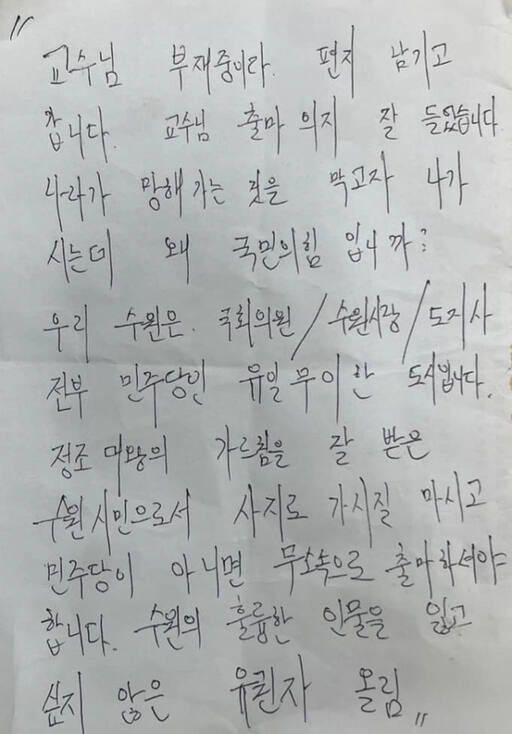 "
교수님 부재중이라. 편지 남기고
갑니다. 교수님 출마 의지 잘 들었습니다
나라가 망해 가는 것을 막고자 나가
시는데 왜 국민의힘 입니까?
우리 수원은. 국회의원/수원시장/도지사
전부 민주당인 유일무이한 도시입니다.
정조 대왕의 가르침을 잘 받은
수원시민으로서 사지로 가시질 마시고
민주당이 아니면 무소속으로 출마하셔야
합니다. 수원의 훌륭한 인물을 잃고
싶지 않은 유권자 올림"